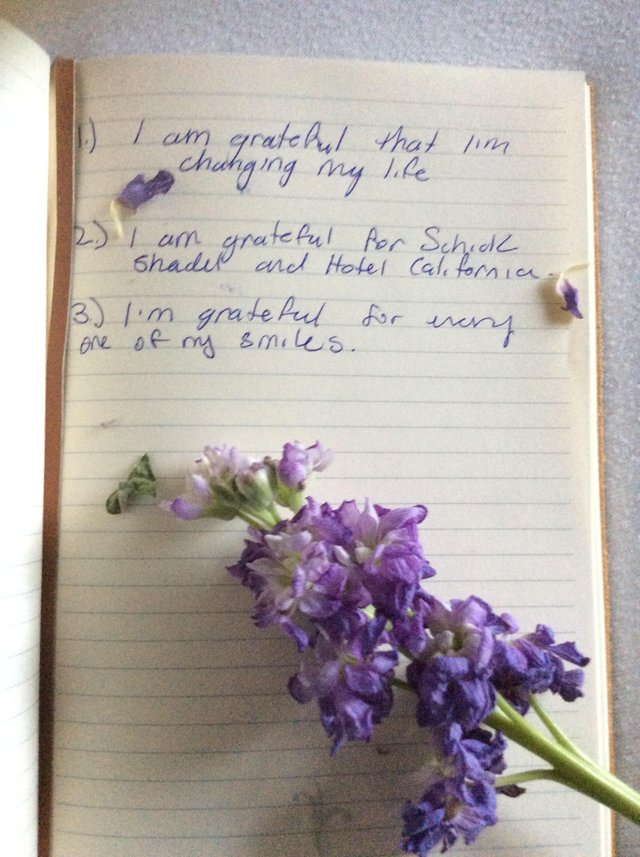 1.) I am grateful that I'm
changing my life
2.) I am grateful for Schick
Shadel and Hotel California.
3.) I'm grateful for every
one of my smiles.